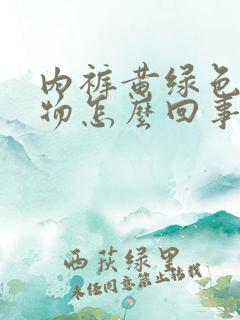 内裤黄绿色
物怎麽回事
西荻绿里
未经同意禁止转载